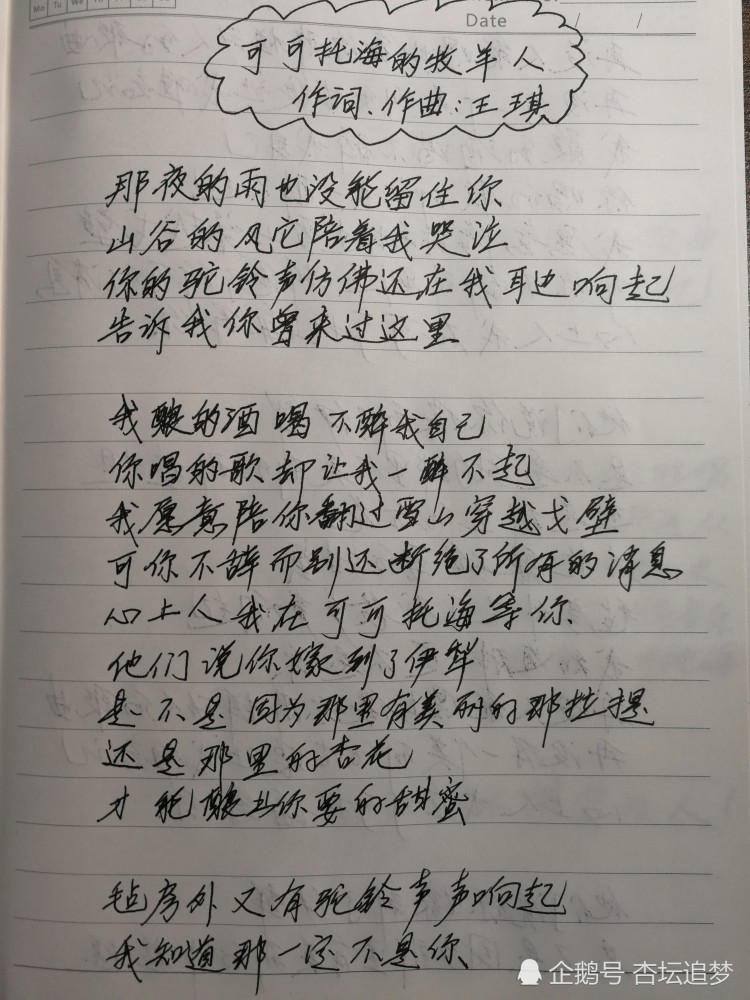 Mo Tu We Th Fr Sa Su
Date / /
可可托海的牧羊人
作词、作曲:王琪
那夜的雨也没能留住你
山谷的风它陪着我哭泣
你的驼铃声仿佛还在我耳边响起
告诉我你曾来过这里
我酿的酒喝不醉我自己
你唱的歌却让我一醉不起
我愿意陪你翻过雪山穿越戈壁
可你不辞而别还断绝了所有的消息
心上人我在可可托海等你
他们说你嫁到了伊犁
是不是因为那里有美丽的那拉提
还是那里的杏花
才能酿出你要的甜蜜
毡房外又有驼铃声声响起
我知道那一定不是你
企鹅号 杏坛追梦